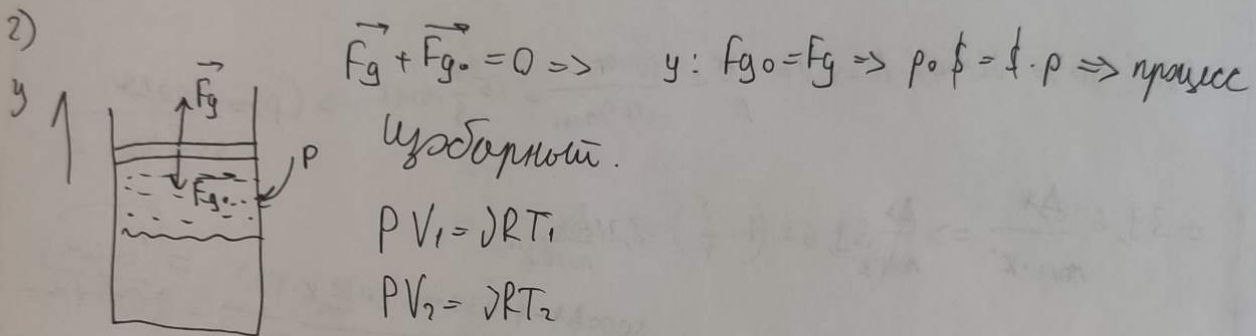 2)
y
Fg
Fg₀
P
Fg + Fg₀ = 0 => y: Fg₀ = Fg => p₀ S = S · p => процесс
изобарный.
PV₁ = νRT₁
PV₂ = νRT₂